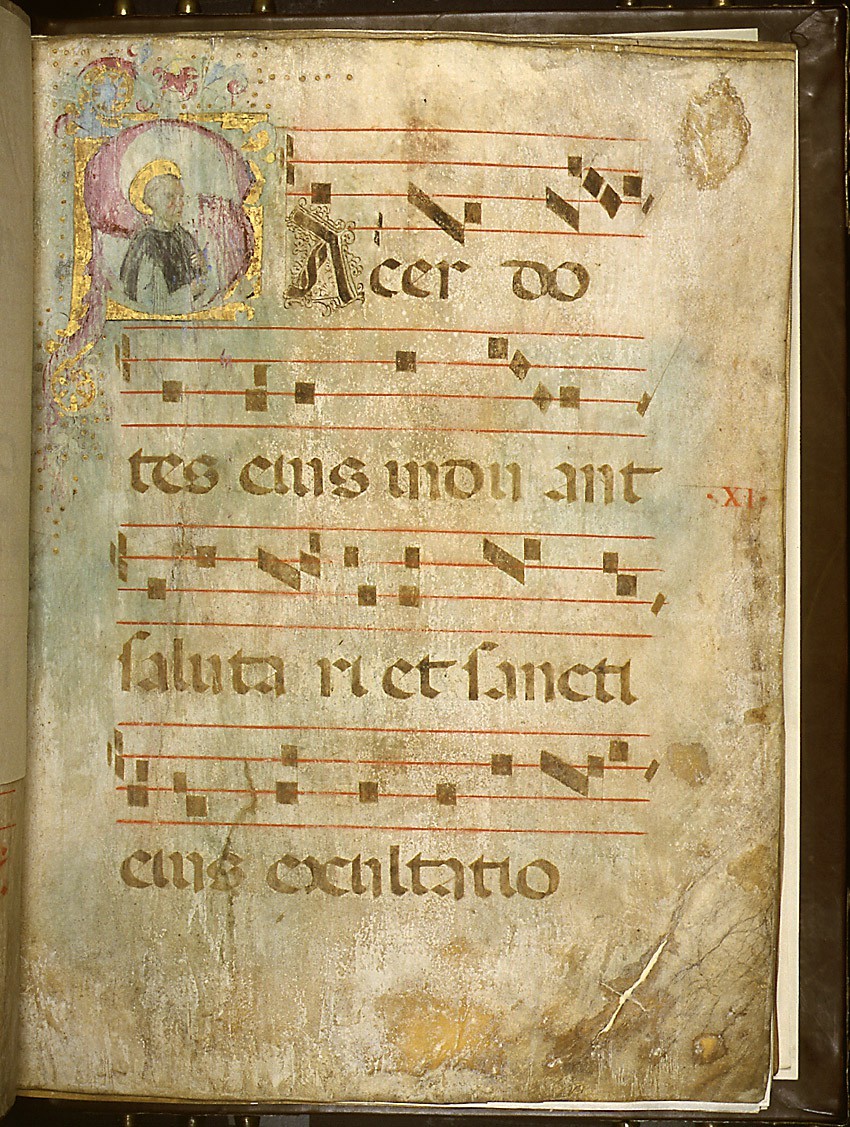 SAcer do
tes eius indu ant
·XI·
saluta ri et sancti
eius exultatio